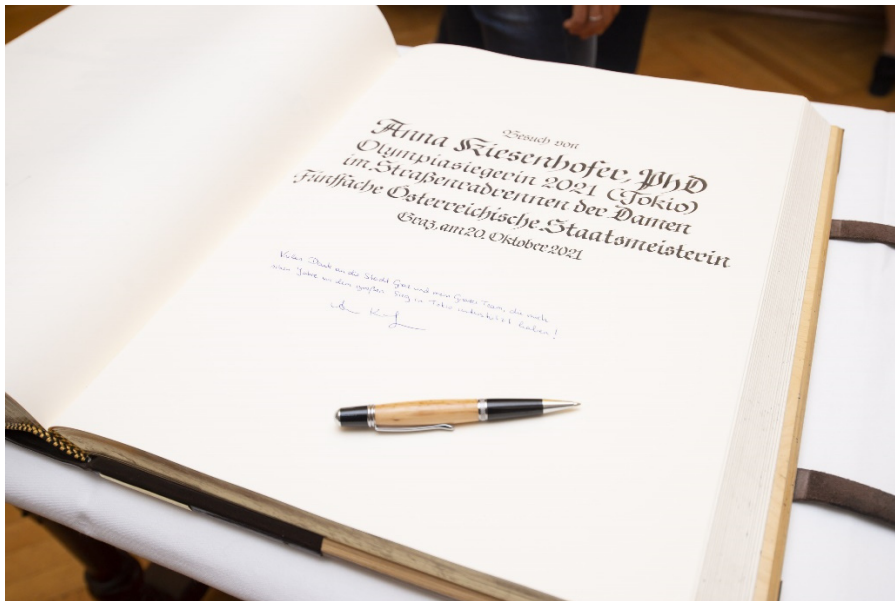 Besuch von
Anna Kiesenhofer, PhD
Olympiasiegerin 2021 (Tokio)
im Straßenradrennen der Damen
Fünffache Österreichische Staatsmeisterin
Graz, am 20. Oktober 2021
Vielen Dank an die Stadt Graz und mein Grazer Team, die mich
beim großen Sieg in Tokio unterstützt haben!